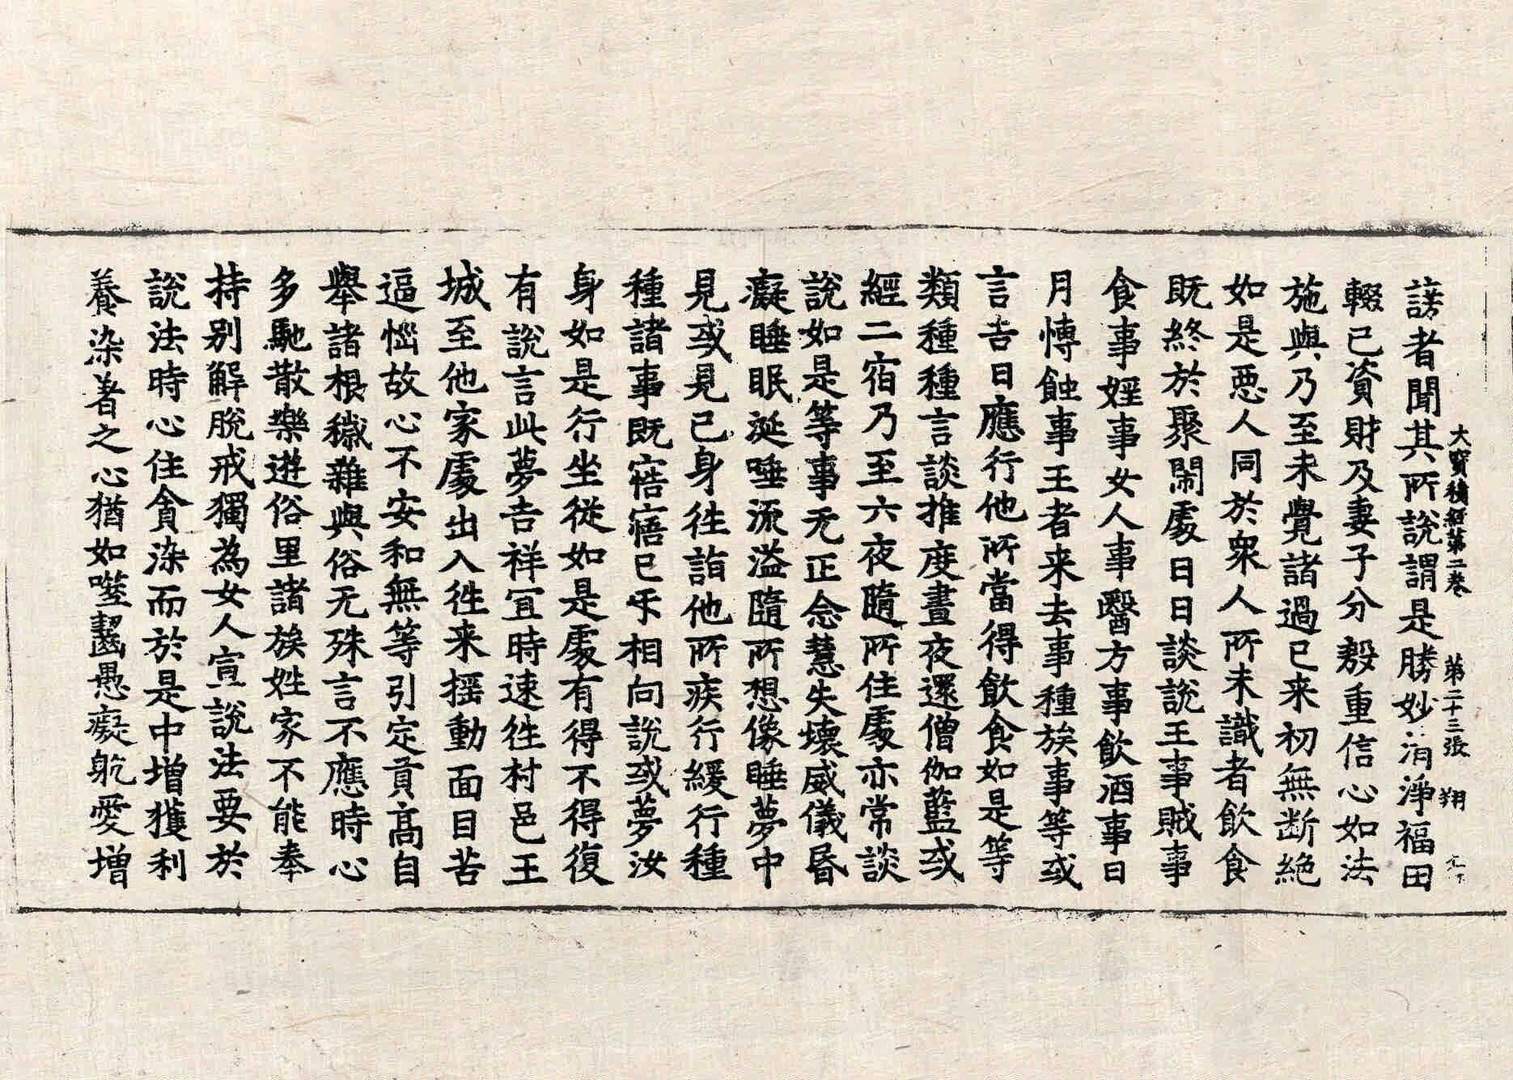 大寶積經第二卷　第二十三張　翔
謗者聞其所說謂是勝妙清淨福田
輟已資財及妻子分殷重信心如法
施與乃至未覺諸過已来初無断絕
如是惡人同於衆人所未識者飲食
既終於聚閙處日日談說王事賊事
食事婬事女人事醫方事飲酒事日
月愽蝕事王者来去事種族事等或
言吉日應行他所當得飲食如是等
類種種言談推度晝夜還僧伽藍或
經二宿乃至六夜隨所住處亦常談
說如是等事无正念慧失壞威儀昏
癡睡眠涎唾流溢隨所想像睡夢中
見或見己身往詣他所疾行緩行種
種諸事既寤寤已乎相向說或夢汝
身如是行坐從如是處有得不得復
有說言此夢吉祥冝時速往村邑王
城至他家處出入往来揺動面目苦
逼惱故心不安和無等引定貢高自
舉諸根穢雜與俗无殊言不應時心
多馳散樂遊俗里諸族姓家不能奉
持别解脫戒獨為女人宣說法要於
說法時心住貪染而於是中增獲利
養染著之心猶如噬齧愚癡躭愛增